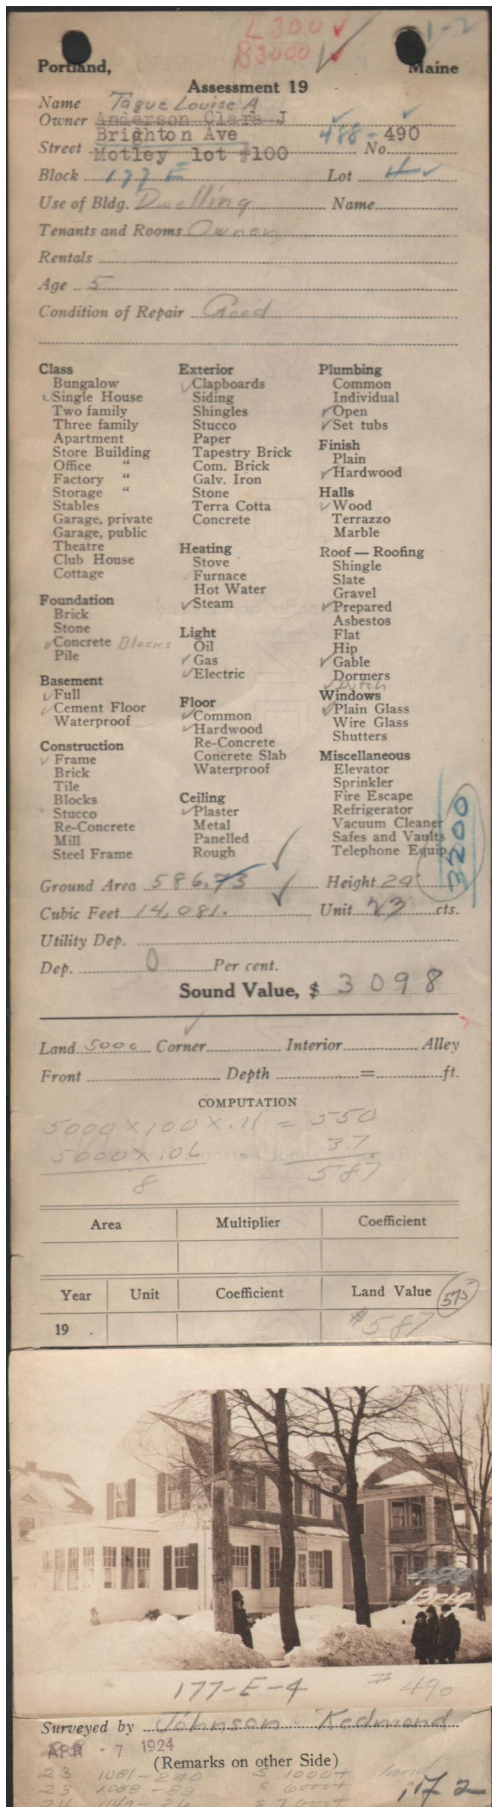 L 300
B 3000
1-2
Portland, Maine
Assessment 19
Name Tague Louise A
Owner Anderson Clara J
Brighton Ave 488-490
Street Motley lot #100 No
Block 177 E Lot 4
Use of Bldg. Dwelling Name
Tenants and Rooms Owner
Rentals
Age 5
Condition of Repair Good
Class
Bungalow
Single House
Two family
Three family
Apartment
Store Building
Office "
Factory "
Storage "
Stables
Garage, private
Garage, public
Theatre
Club House
Cottage
Foundation
Brick
Stone
Concrete Blocks
Pile
Basement
Full
Cement Floor
Waterproof
Construction
Frame
Brick
Tile
Blocks
Stucco
Re-Concrete
Mill
Steel Frame
Exterior
Clapboards
Siding
Shingles
Stucco
Paper
Tapestry Brick
Com. Brick
Galv. Iron
Stone
Terra Cotta
Concrete
Heating
Stove
Furnace
Hot Water
Steam
Light
Oil
Gas
Electric
Floor
Common
Hardwood
Re-Concrete
Concrete Slab
Waterproof
Ceiling
Plaster
Metal
Panelled
Rough
Plumbing
Common
Individual
Open
Set tubs
Finish
Plain
Hardwood
Halls
Wood
Terrazzo
Marble
Roof — Roofing
Shingle
Slate
Gravel
Prepared
Asbestos
Flat
Hip
Gable
Dormers
Dutch
Windows
Plain Glass
Wire Glass
Shutters
Miscellaneous
Elevator
Sprinkler
Fire Escape
Refrigerator
Vacuum Cleaner
Safes and Vaults
Telephone Equip.
3200
Ground Area 586.73 Height 24'
Cubic Feet 14,081. Unit 23 cts.
Utility Dep.
Dep. 0 Per cent.
Sound Value, $ 3098
Land 5000 Corner Interior Alley
Front Depth = ft.
COMPUTATION
5000 X 100 X .11 = 550
5000 X .06 = 37.
8 587
Area Multiplier Coefficient
Year Unit Coefficient Land Value 575
19 . #587
490
Brig
177-E-4 #490
Surveyed by Johnson Redmond
APR - 7 1924
(Remarks on other Side)